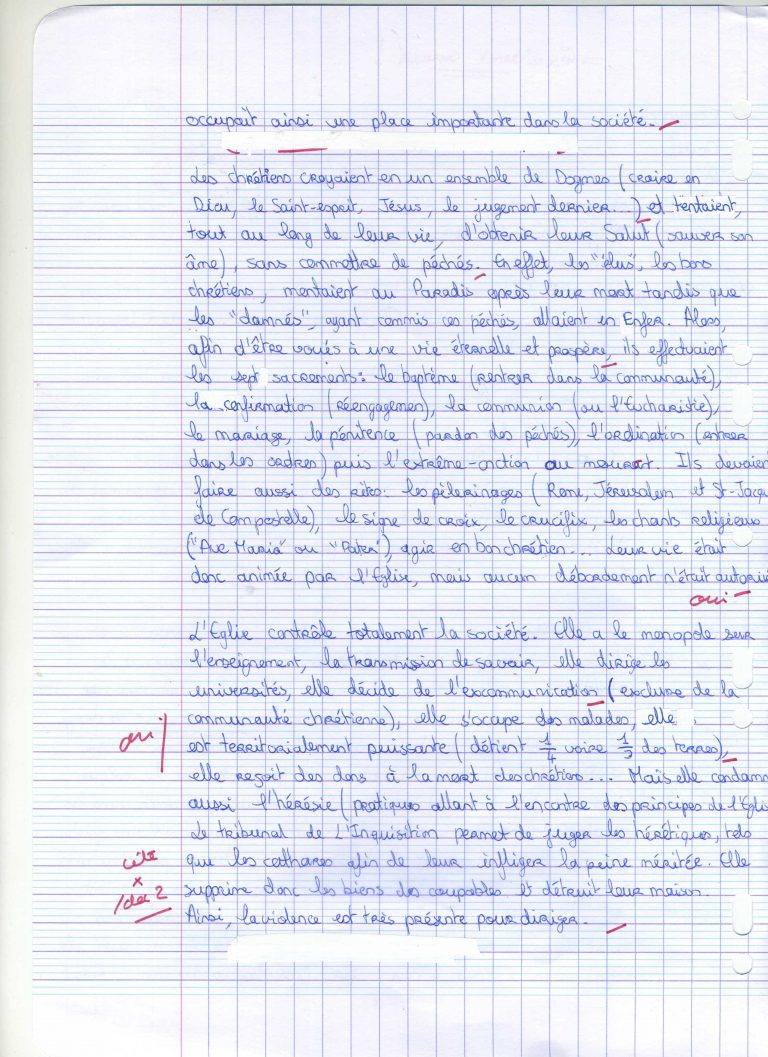 occupait ainsi une place importante dans la société.
Les chrétiens croyaient en un ensemble de Dogmes (croire en
Dieu, le Saint-esprit, Jésus, le jugement dernier...) et tentaient,
tout au long de leur vie, d'obtenir leur Salut (sauver son
âme), sans commettre de péchés. En effet, les "élus", les bons
chrétiens, montaient au Paradis après leur mort tandis que
les "damnés", ayant commis ces péchés, allaient en Enfer. Alors,
afin d'être voués à une vie éternelle et prospère, ils effectuaient
les sept sacrements: le baptême (rentrer dans la communauté),
la confirmation (réengagement), la communion (ou l'Eucharistie),
le mariage, la pénitence (pardon des péchés), l'ordination (entrer
dans les ordres) puis l'extrême-onction au mourant. Ils devaient
faire aussi des rites: les pèlerinages (Rome, Jérusalem et St-Jacqu
de Compostelle), le signe de croix, le crucifix, les chants religieux
("Ave Maria" ou "Pater"), agir en bon chrétien... Leur vie était
donc animée par l'Eglise, mais aucun débordement n'était autoris
oui
L'Eglise contrôle totalement la société. Elle a le monopole sur
l'enseignement, la transmission de savoir, elle dirige les
universités, elle décide de l'excommunication (exclure de la
communauté chrétienne), elle s'occupe des malades, elle
oui
est territorialement puissante (détient 1/4 voire 1/3 des terres),
elle reçoit des dons à la mort des chrétiens... Mais elle condamn
aussi l'hérésie (pratiques allant à l'encontre des principes de l'Eglis
Le tribunal de L'Inquisition permet de juger les hérétiques, tels
que les cathares afin de leur infliger la peine méritée. Elle
supprime donc les biens des coupables et détruit leur maison.
Ainsi, la violence est très présente pour diriger.